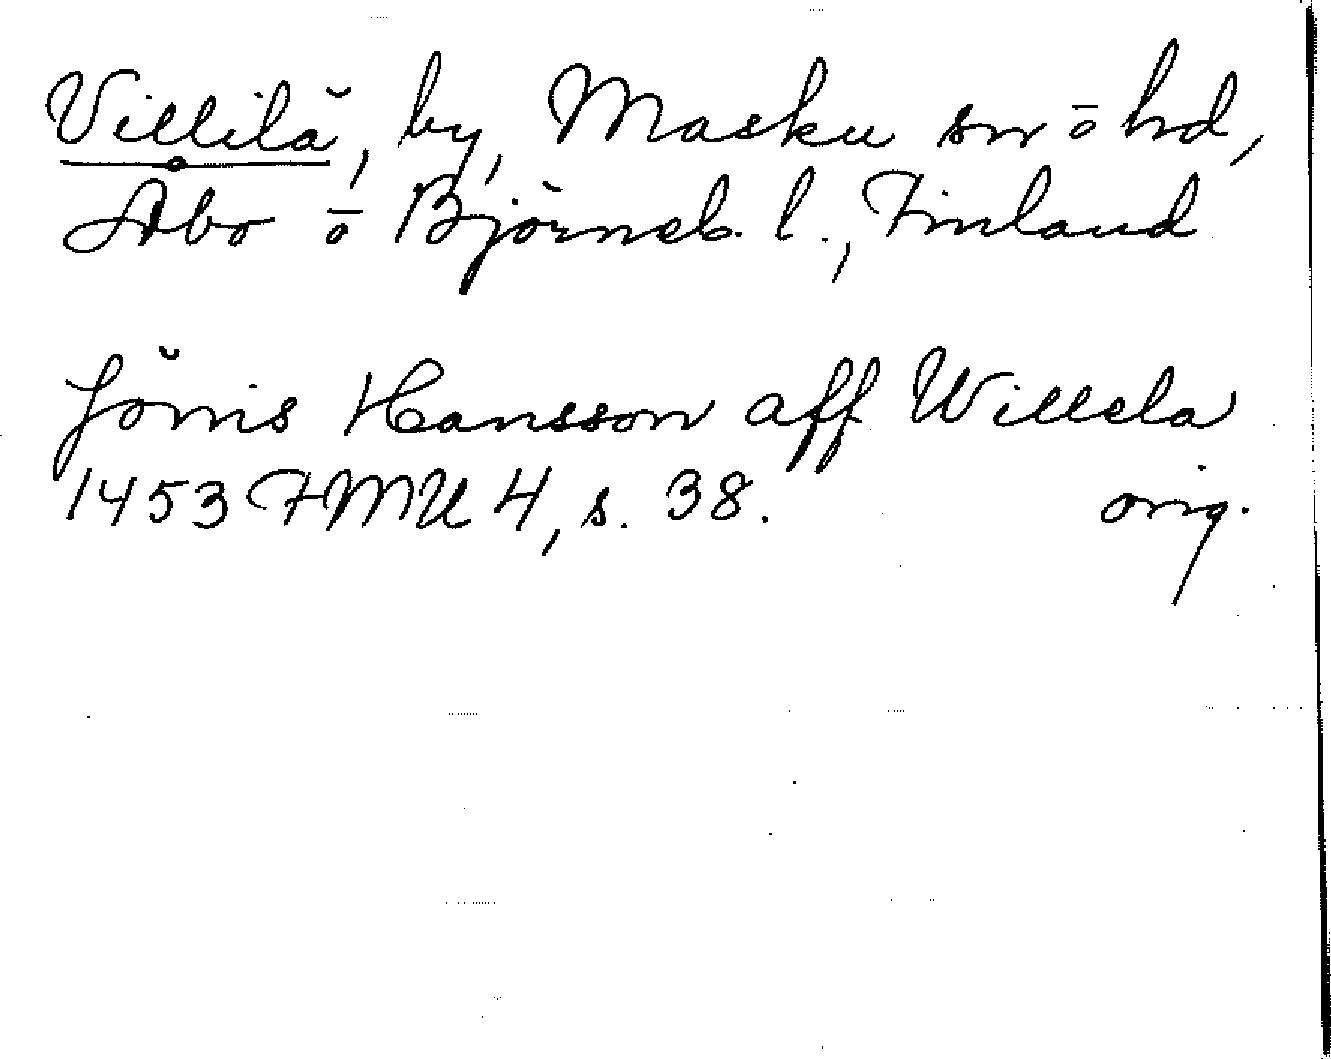 Villilä, by, Masku sn ō hd,
Åbo ō Björneb. l., Finland
Jönis Hansson aff Willela
1453 FMU 4, s. 38. orig.